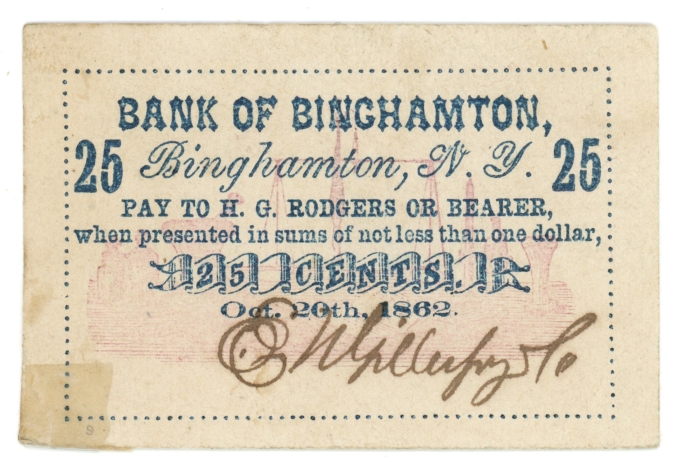 BANK OF BINGHAMTON,
25 Binghamton, N. Y. 25
PAY TO H. G. RODGERS OR BEARER,
when presented in sums of not less than one dollar,
25 CENTS.
Oct. 20th, 1862.